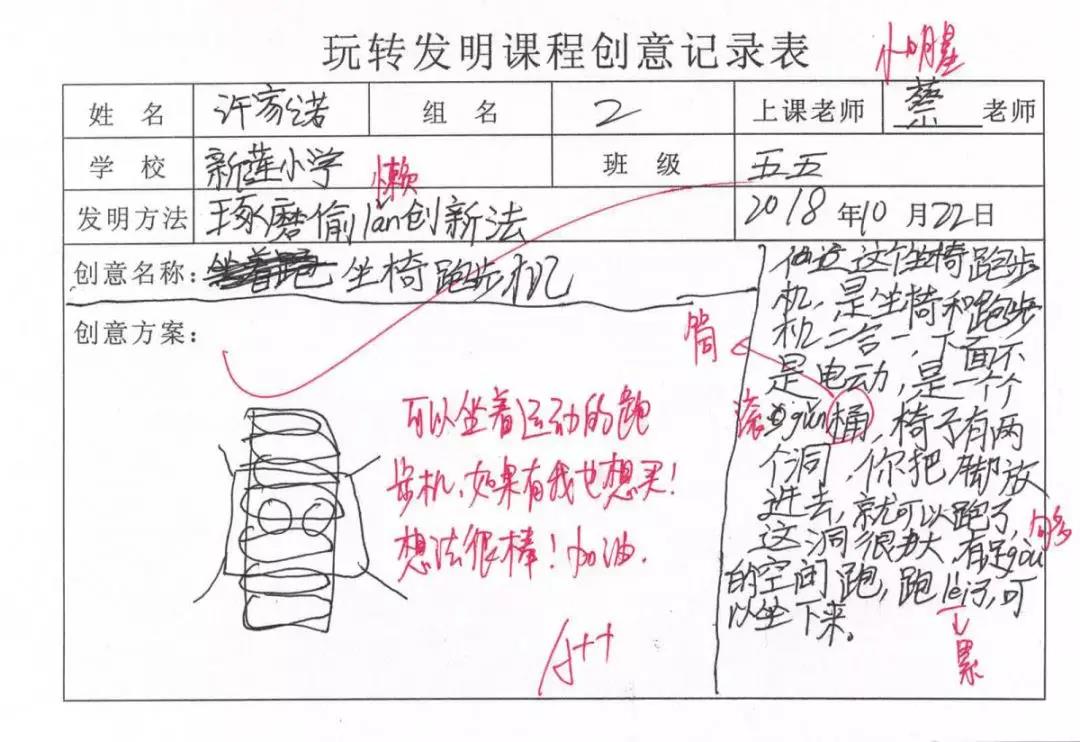 玩转发明课程创意记录表
小明星
姓 名 许家诺 组 名 2 上课老师 蔡 老师
学 校 新莲小学 班 级 五五
懒
发明方法 琢磨偷lǎn创新法 2018 年 10 月 22 日
创意名称： 坐椅跑步机
创意方案：
这个坐椅跑步
机，是坐椅和跑步
机二合一，下面不
是电动，是一个个
gǔn桶，椅子有两
个洞，你把脚放
进去，就可以跑了，
这洞很大，有足gòu
的空间跑，跑lèi了，可
以坐下来。
筒
滚
够
累
可以坐着运动的跑
步机，如果有我也想买！
想法很棒！加油.
A++